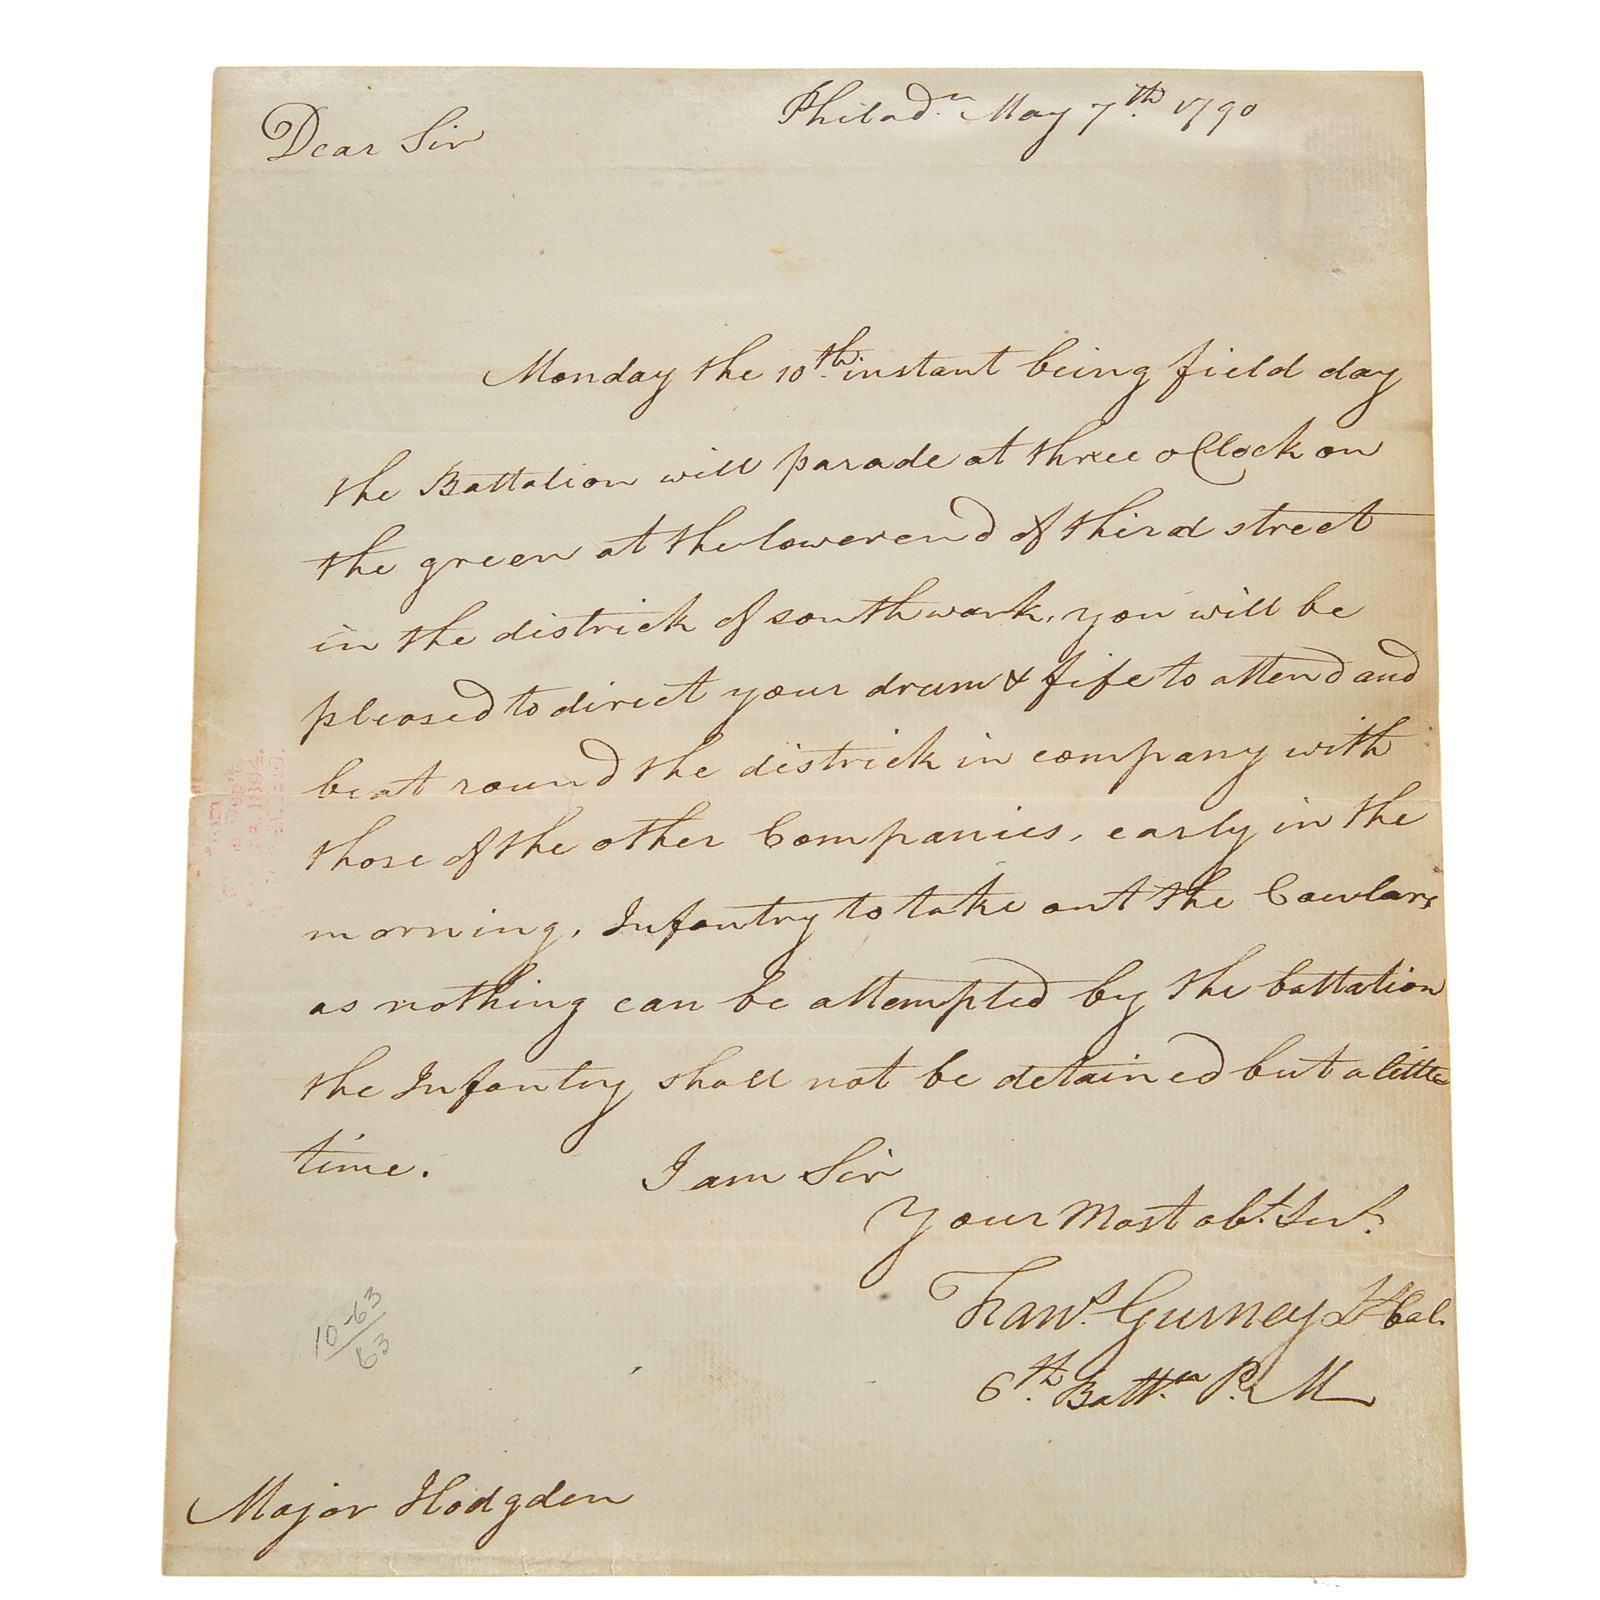 Philad.ᵃ May 7.th 1790
Dear Sir
Monday the 10.th instant being field day
the Battalion will parade at three oClock on
the green at the lower end of third street
in the districk of southwark, you will be
pleased to direct your drum & fife to attend and
beat round the districk in company with
those of the other Companies, early in the
morning, Infantry to take out the
as nothing can be attempted by the battalion
the Infantry shall not be detained but a little
time. I am Sir
Your Most obt. Servt.
Frans. Gurney Lt Col.
6.th Batt.n P. M
10-63
63
Major Hodgden
1894.